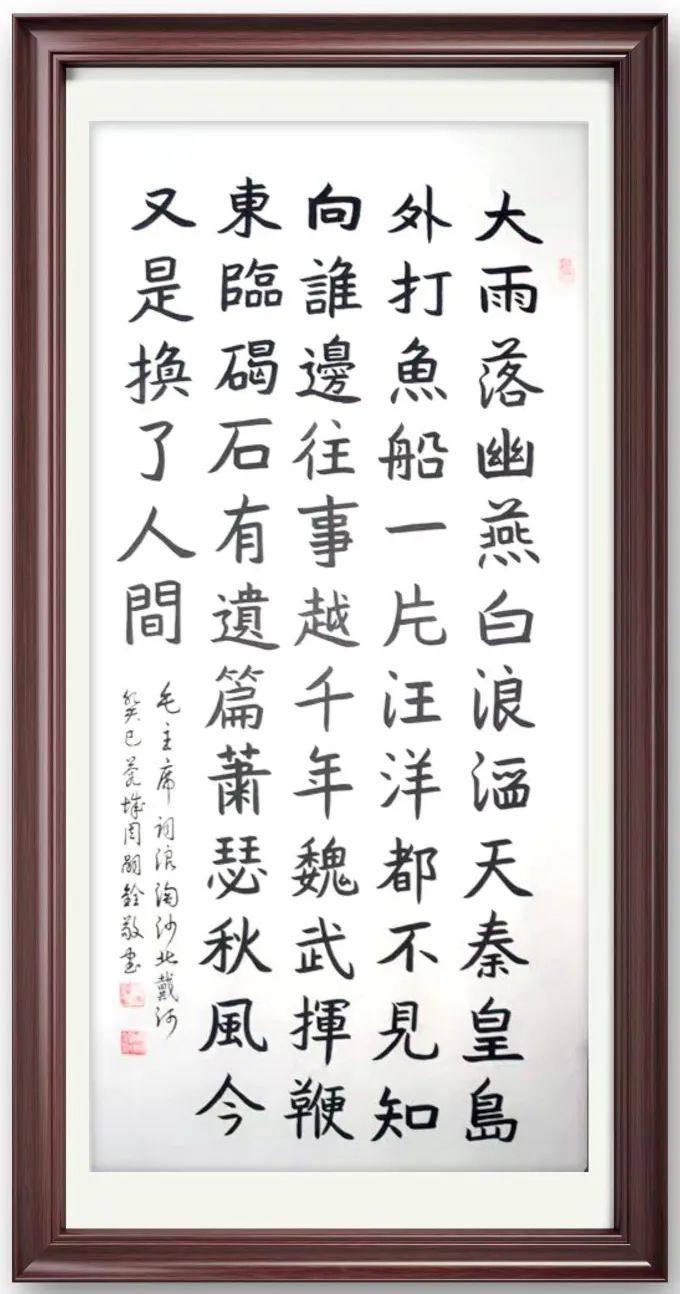 大雨落幽燕白浪滔天秦皇島
外打魚船一片汪洋都不見知
向誰邊往事越千年魏武揮鞭
東臨碣石有遺篇蕭瑟秋風今
又是換了人間
毛主席詞浪淘沙北戴河
癸巳城周嗣銓敬書